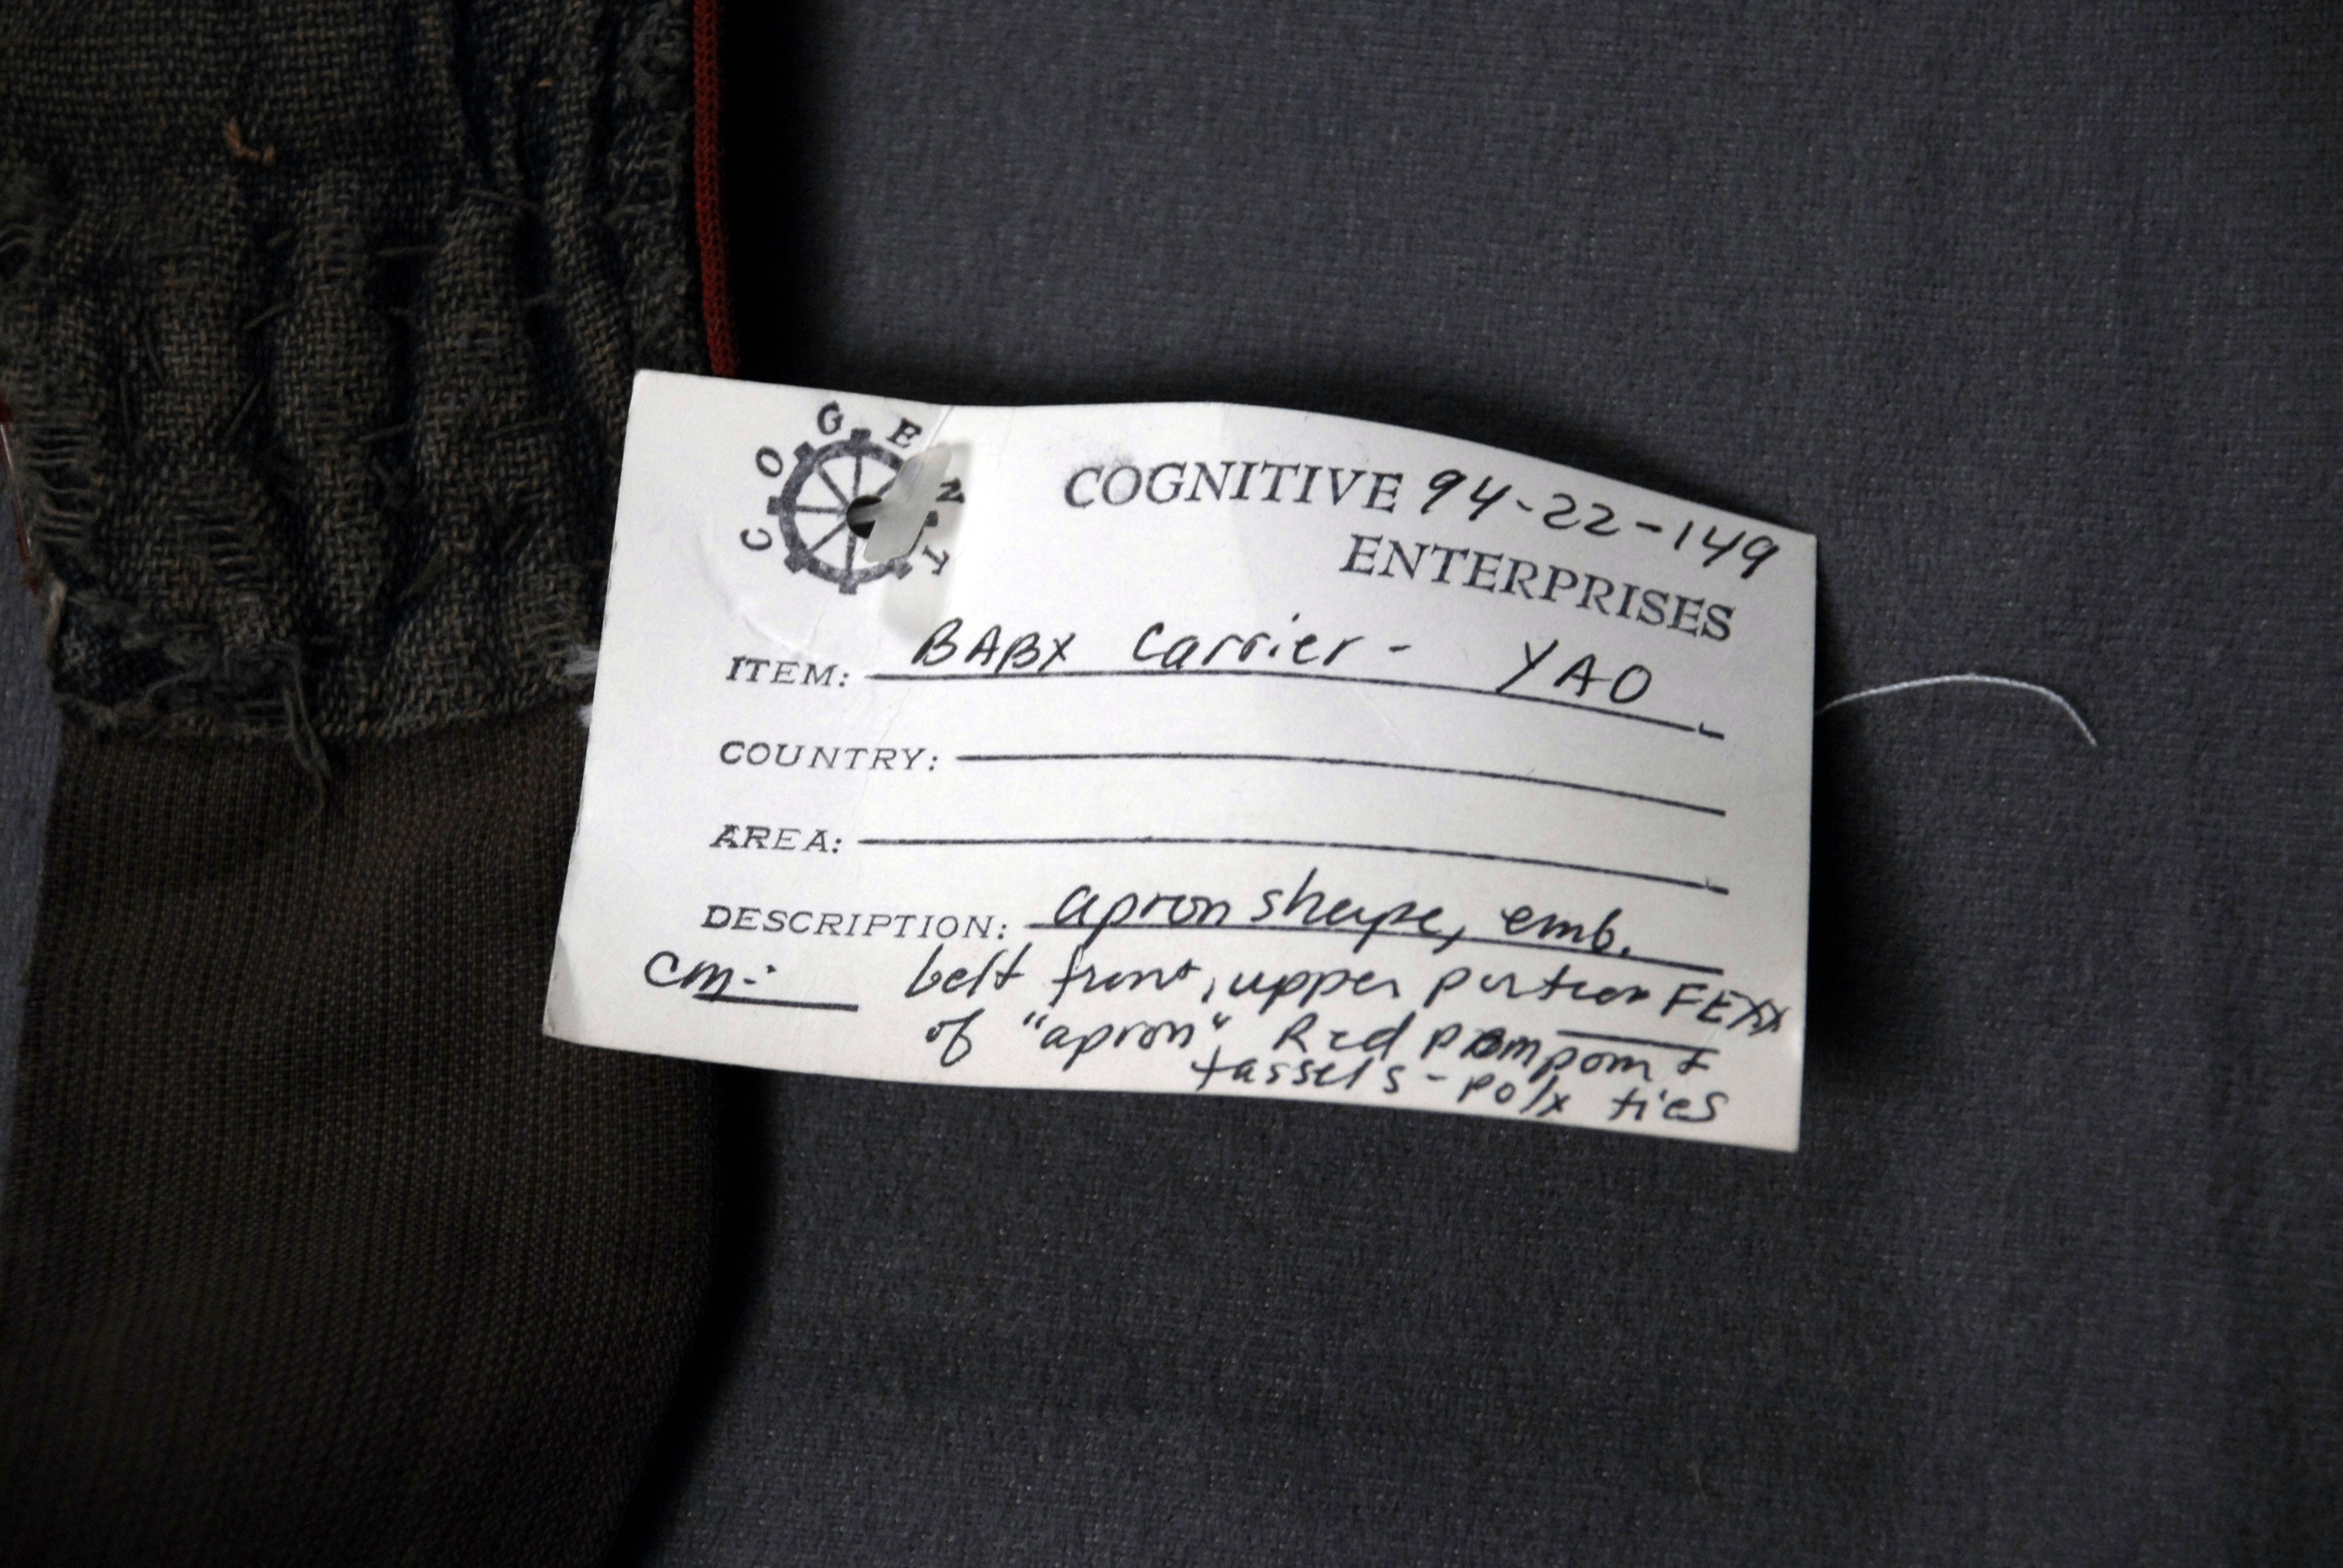 COGENT
COGNITIVE 94-22-149
ENTERPRISES
ITEM: BABY Carrier - YAO
COUNTRY:
AREA:
DESCRIPTION: apron shape, emb.
cm: belt front, upper portion
of "apron" Red pompom &
tassels - poly ties